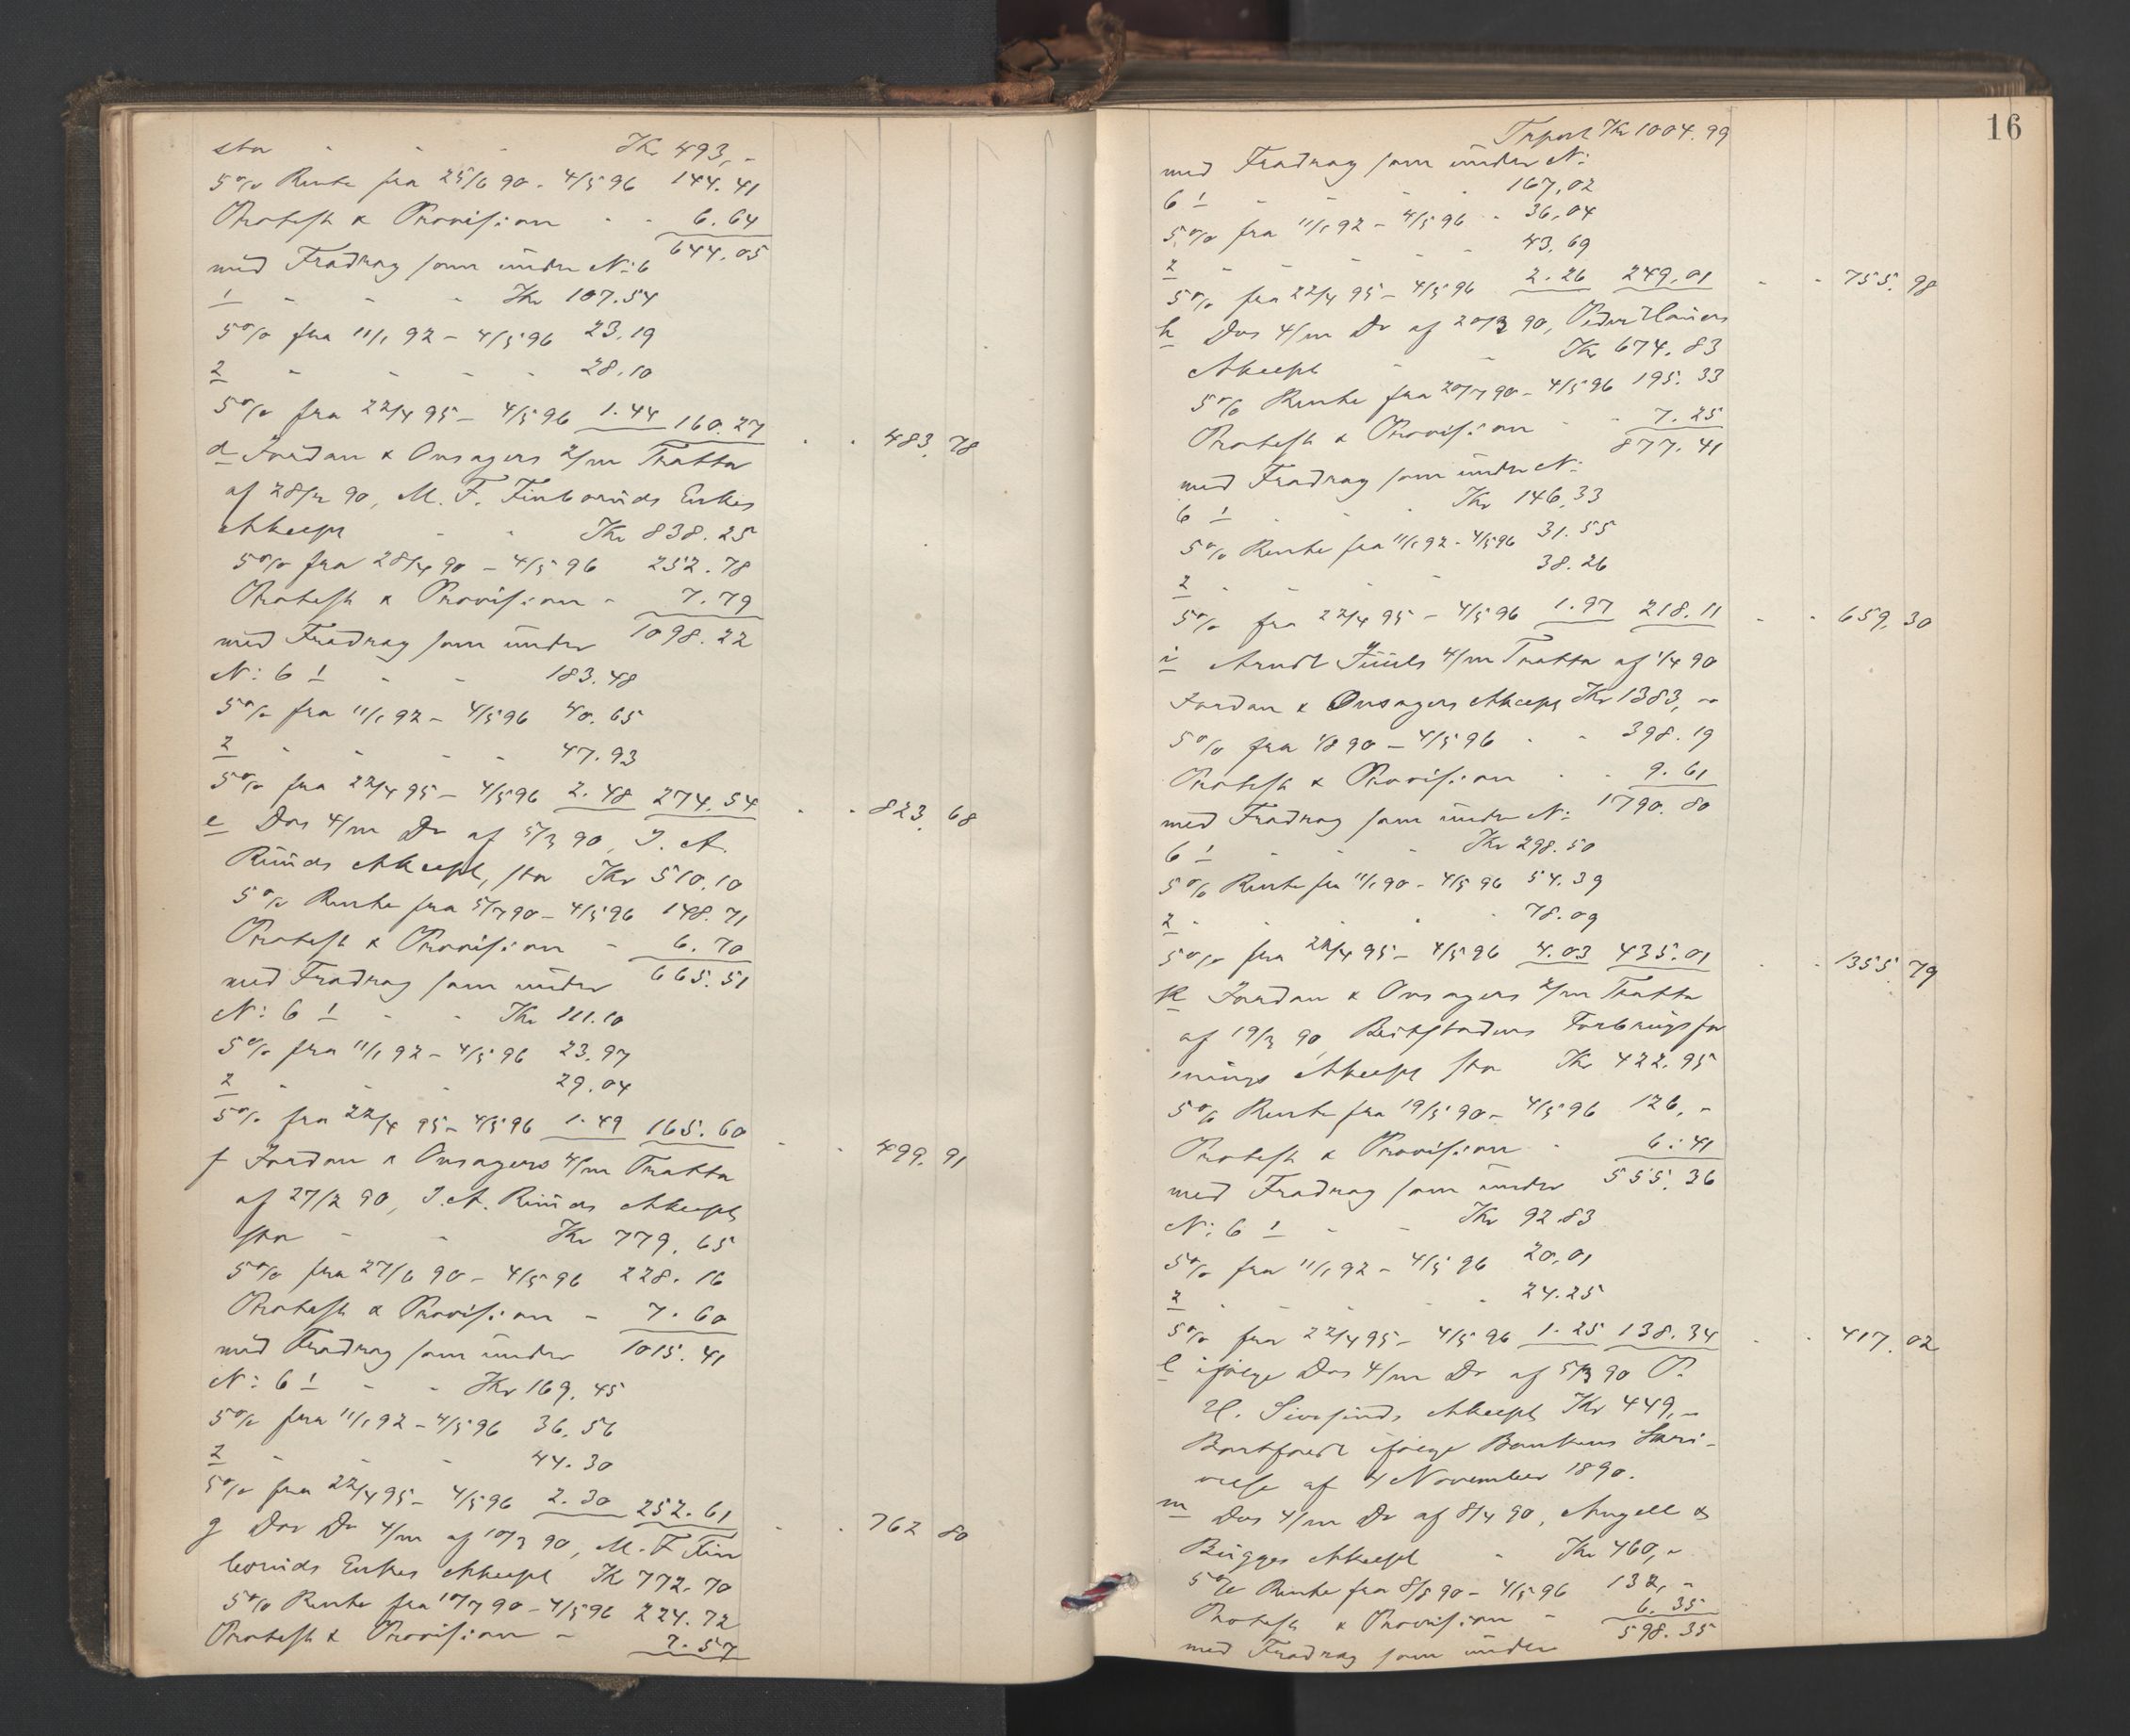 stor - - - Kr 493,-
5% Rente fra 25/6 90 - 4/5 96 144.41
Protest & Provision - - 6.64
med Fradrag som under N: 6 644.05
1 - - - Kr 107.54
5% fra 11/1 92 - 4/5 96 23.19
2 - - - - 28.10
5% fra 22/4 95 - 4/5 96 1.44 160.27 - - 483.78
d Jordan & Onsagers 2/m Tratta
af 28/2 90, M. F. Finborüds Enkes
Akcept - - Kr 838.25
5% fra 28/4 90 - 4/5 96 252.78
Protest & Provision - 7.79
med Fradrag som under 1098.22
N: 6 1 - - 183.48
5% fra 11/1 92 - 4/5 96 40.65
2 - - - - 47.93
5% fra 22/4 95 - 4/5 96 2.48 274.54 - - 823.68
e Dos 4/m Dr af 5/3 90, J. A.
Rüüds Akcept, stor Kr 510.10
5% Rente fra 5/7 90 - 4/5 96 148.71
Protest & Provision - 6.70
med Fradrag som under 665.51
N: 6 1 - - Kr 111.10
5% fra 11/1 92 - 4/5 96 23.97
2 - - - 29.04
5% fra 22/4 95 - 4/5 96 1.49 165.60 - - 499.91
f Jordan & Onsagers 4/m Tratta
af 27/2 90, J. A. Rüüds Akcept
stor - - Kr 779.65
5% fra 27/6 90 - 4/5 96 228.16
Protest & Provision - 7.60
med Fradrag som under 1015.41
N: 6 1 - - Kr 169.45
5% fra 11/1 92 - 4/5 96 36.56
2 - - - 44.30
5% fra 22/4 95 - 4/5 96 2.30 252.61 - - 762 80
g Dos Dr 4/m af 10/3 90, M. F. Fin
borüds Enkes Akcept Kr 772.70
5% Rente fra 10/7 90 - 4/5 96 224.72
Protest & Provision - 7.57
16
Trport Kr 1004.99
med Fradrag som under N:
6 1 - - - 167,02
5% fra 11/1 92 - 4/5 96 - 36,04
2 - - - - 43.69
5% fra 22/4 95 - 4/5 96 2.26 249,01 - - 755.98
h Dos 4/m Dr af 20/3 90, Peder
Akcept - - Kr 674.83
5% Rente fra 20/7 90 - 4/5 96 195.33
Protest & Provision - - 7.25
med Fradrag som under N: 877.41
6 1 - - - Kr 146,33
5% Rente fra 11/1 92 - 4/5 96 31.55
2 - - - 38.26
5% fra 22/4 95 - 4/5 96 1.97 218.11 - - 659,30
i Arndt Jüüls 4/m Tratta af 1/4 90
Jordan & Onsagers Akcept Kr 1383,-
5% fra 1/8 90 - 4/5 96 - - 398.19
Protest & Provision - - 9.61
med Fradrag som under N: 1790.80
6 1 - - - Kr 298.50
5% Rente fra 11/1 90 - 4/5 96 54.39
2 - - - 78.09
5% fra 22/4 95 - 4/5 96 4.03 435.01 - - 1355.79
k Jordan & Onsagers 2/m Tratta
af 19/3 90, Beitstadens Forbrügsfor
enings Akcept stor Kr 422.95
5% Rente fra 19/5 90 - 4/5 96 126,-
Protest & Provision - 6.41
med Fradrag som under 555.36
N: 6 1 - - Kr 92.83
5% fra 11/1 92 - 4/5 96 20,01
2 - - - - 24.25
5% fra 22/4 95 - 4/5 96 1.25 138.34 - - 417.02
l ifølge Dos 4/m Dr af 5/3 90 P.
H. Akcept Kr 449,-
Bortfaldt ifølge Bankens Skri-
velse af 4 November 1890.
m Dos 4/m Dr af 8/4 90, Angell &
Bügges Akcept - Kr 460,-
5% Rente fra 8/8 90 - 4/5 96 132,-
Protest & Provision - 6.35
med Fradrag som under 598.35